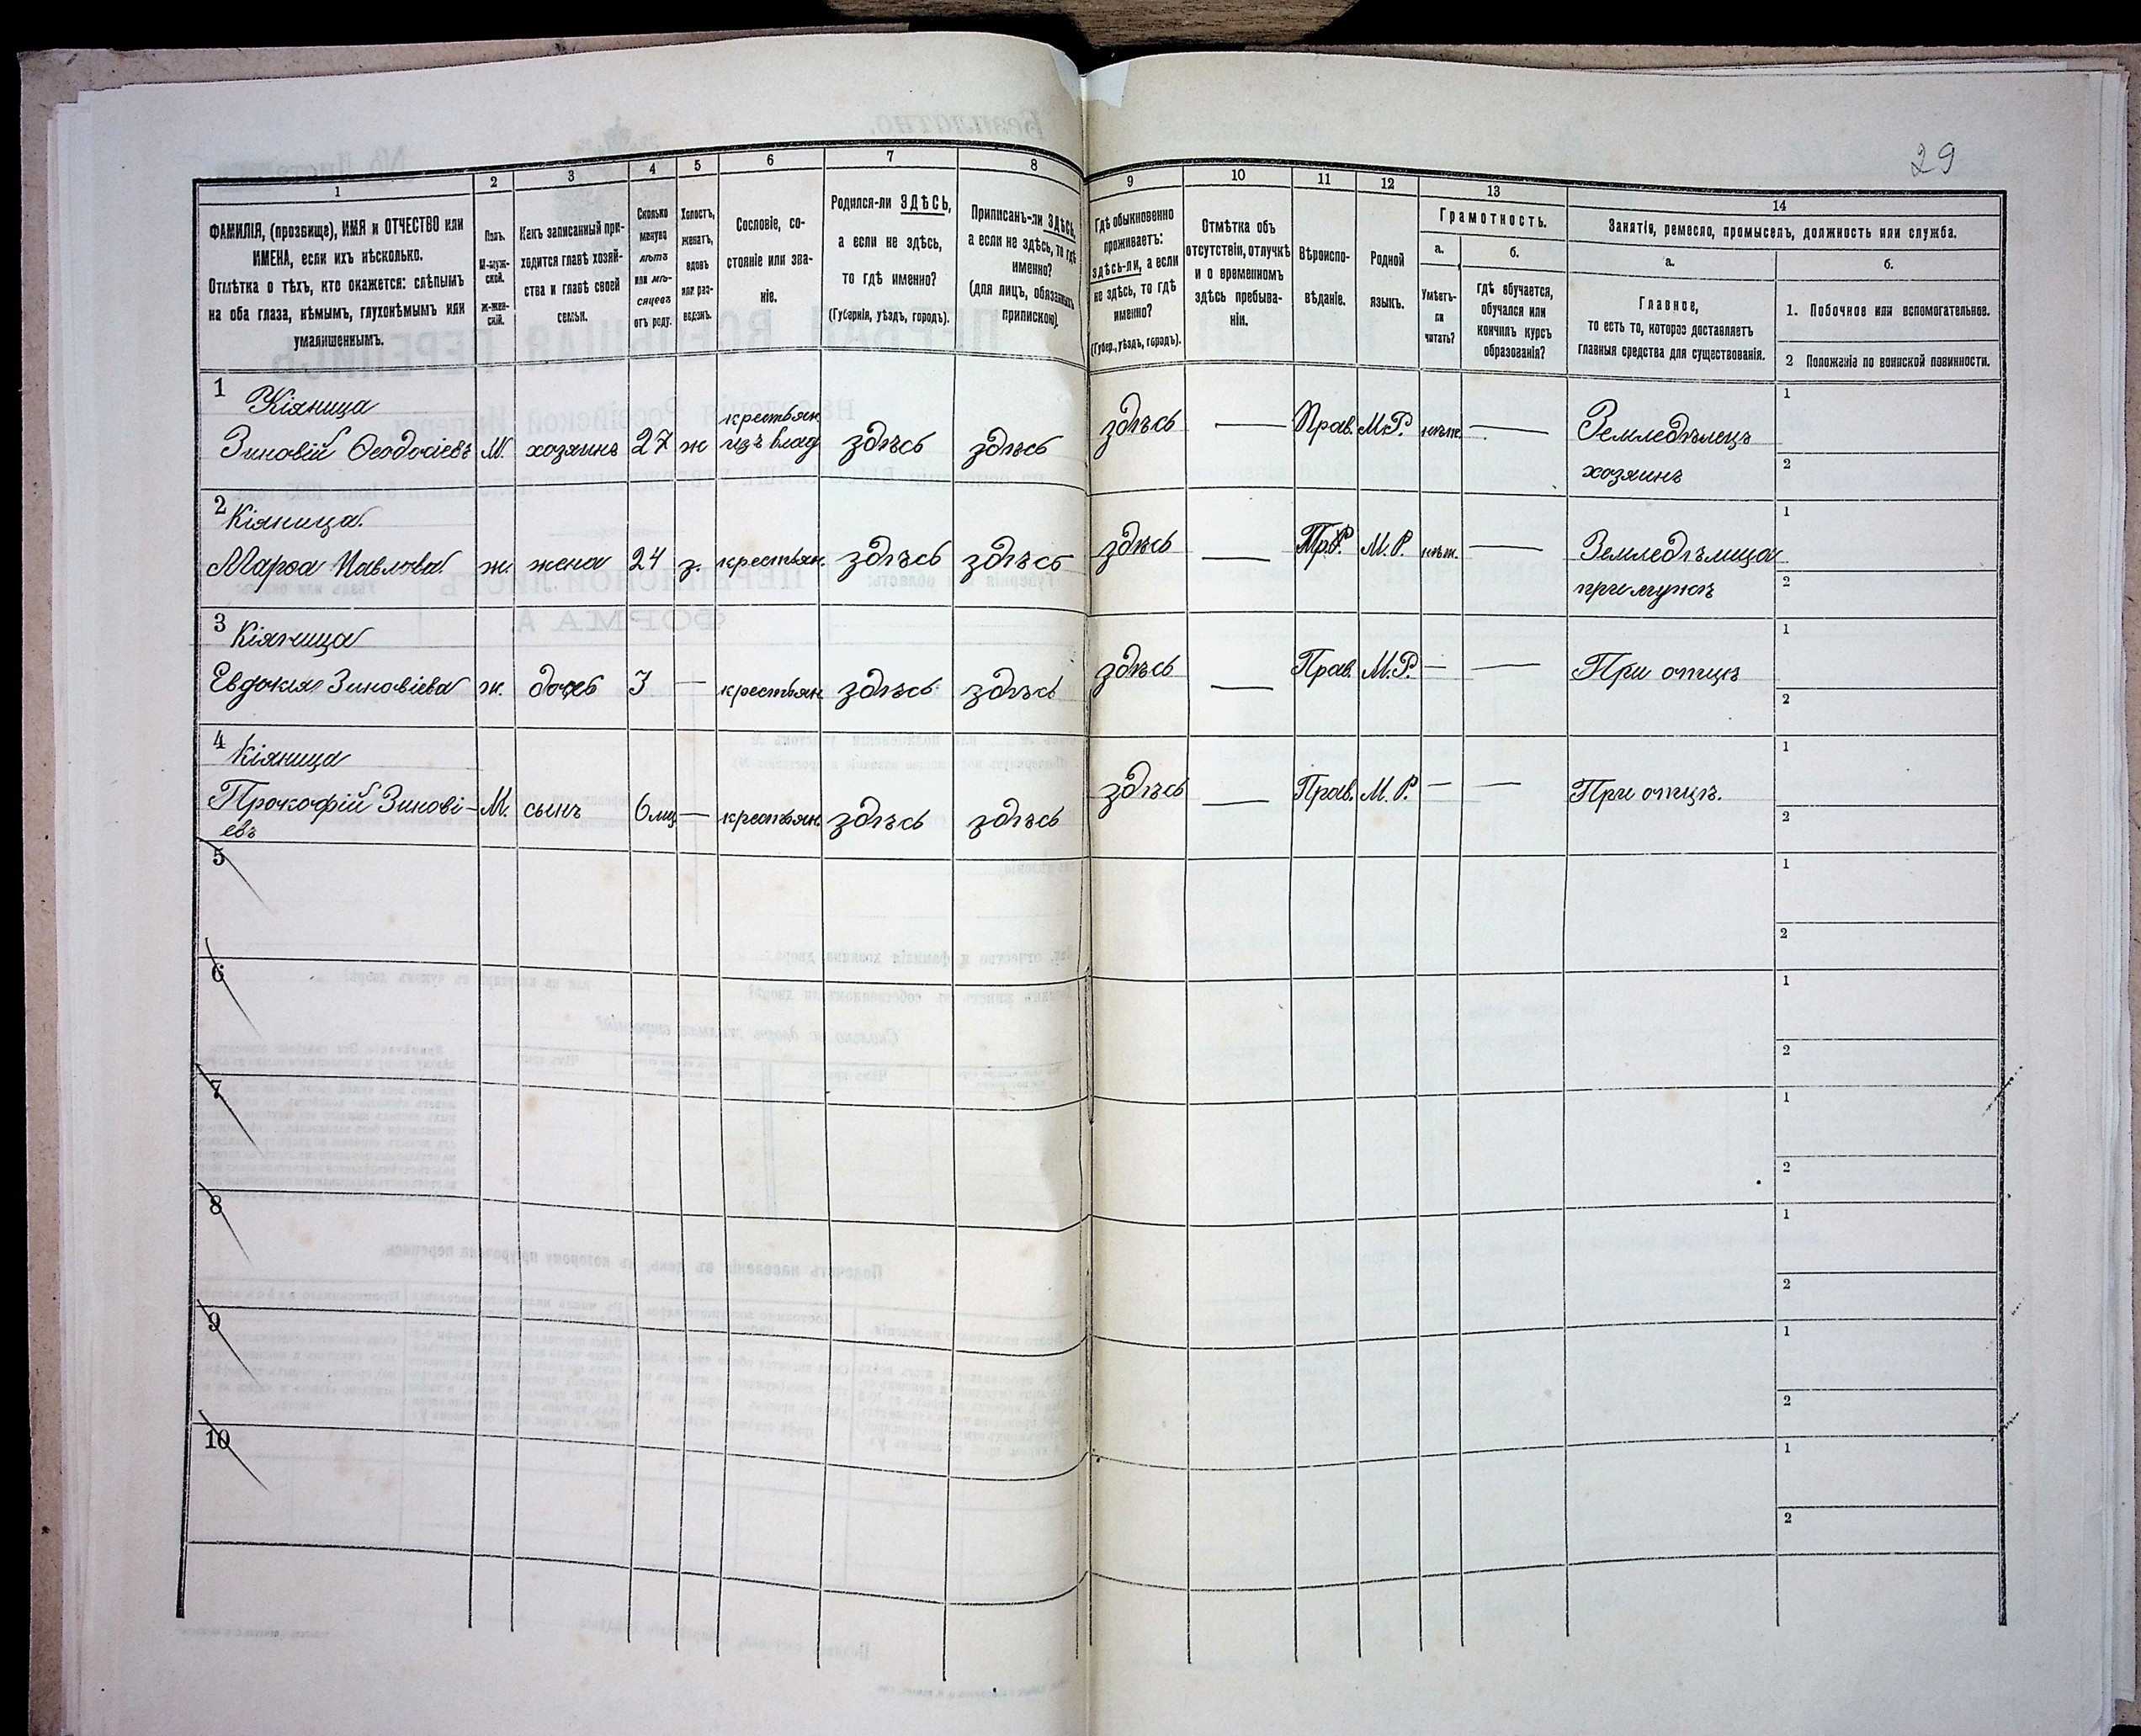 29
1 2 3 4 5 6 7 8 9 10 11 12 13 14
ФАМИЛІЯ, (прозвище), ИМЯ и ОТЧЕСТВО или
ИМЕНА, если ихъ нѣсколько.
Отмѣтка о тѣхъ, кто окажется: слѣпымъ
на оба глаза, нѣмымъ, глухонѣмымъ или
умалишеннымъ.
Полъ.
М-муж-
ской.
ж-жен-
скій.
Какъ записанный при-
ходится главѣ хозяй-
ства и главѣ своей
семьи.
Сколько
минуло
лѣтъ
или мѣ-
сяцевъ
отъ роду.
Холостъ,
женатъ,
вдовъ
или раз-
веденъ.
Сословіе, со-
стояніе или зва-
ніе.
Родился-ли ЗДѢСЬ,
а если не здѣсь,
то гдѣ именно?
(Губернія, уѣздъ, городъ).
Приписанъ-ли ЗДѢСЬ,
а если не здѣсь, то гдѣ
именно?
(для лицъ, обязанныхъ
припискою).
Гдѣ обыкновенно
проживаетъ:
здѣсь-ли, а если
не здѣсь, то гдѣ
именно?
(Губер., уѣздъ, городъ).
Отмѣтка объ
отсутствіи, отлучкѣ
и о временномъ
здѣсь пребыва-
ніи.
Вѣроиспо-
вѣданіе.
Родной
языкъ.
Грамотность.
а. б.
Умѣетъ-
ли
читать?
гдѣ обучается,
обучался или
кончилъ курсъ
образованія?
Занятія, ремесло, промыселъ, должность или служба.
а. б.
Главное,
то есть то, которое доставляетъ
главныя средства для существованія.
1. Побочное или вспомогательное.
2 Положеніе по воинской повинности.
1 Кіяница
Зиновій Феодосіевъ М. хозяинъ 27 ж крестьян. изъ влад здѣсь здѣсь здѣсь — Прав. М.Р. нѣт. — Земледѣлецъ
хозяинъ
1
2
2 Кіяница
Марѳа Павлова ж. жена 24 з. крестьян. здѣсь здѣсь здѣсь — М. Р. нѣт. — Земледѣлица
при мужѣ
1
2
3 Кіяница
Евдокія Зиновіева ж. дочь 3 — крестьян здѣсь здѣсь здѣсь — Прав. М.Р. — — При отцѣ
1
2
4 Кіяница
Прокофій Зинові- М. сынъ 6 мц — крестьян. здѣсь здѣсь здѣсь — Прав. М. Р. — — При отцѣ.
евъ
1
2
5
1
2
6
1
2
7
1
2
8
1
2
9
1
2
10
1
2